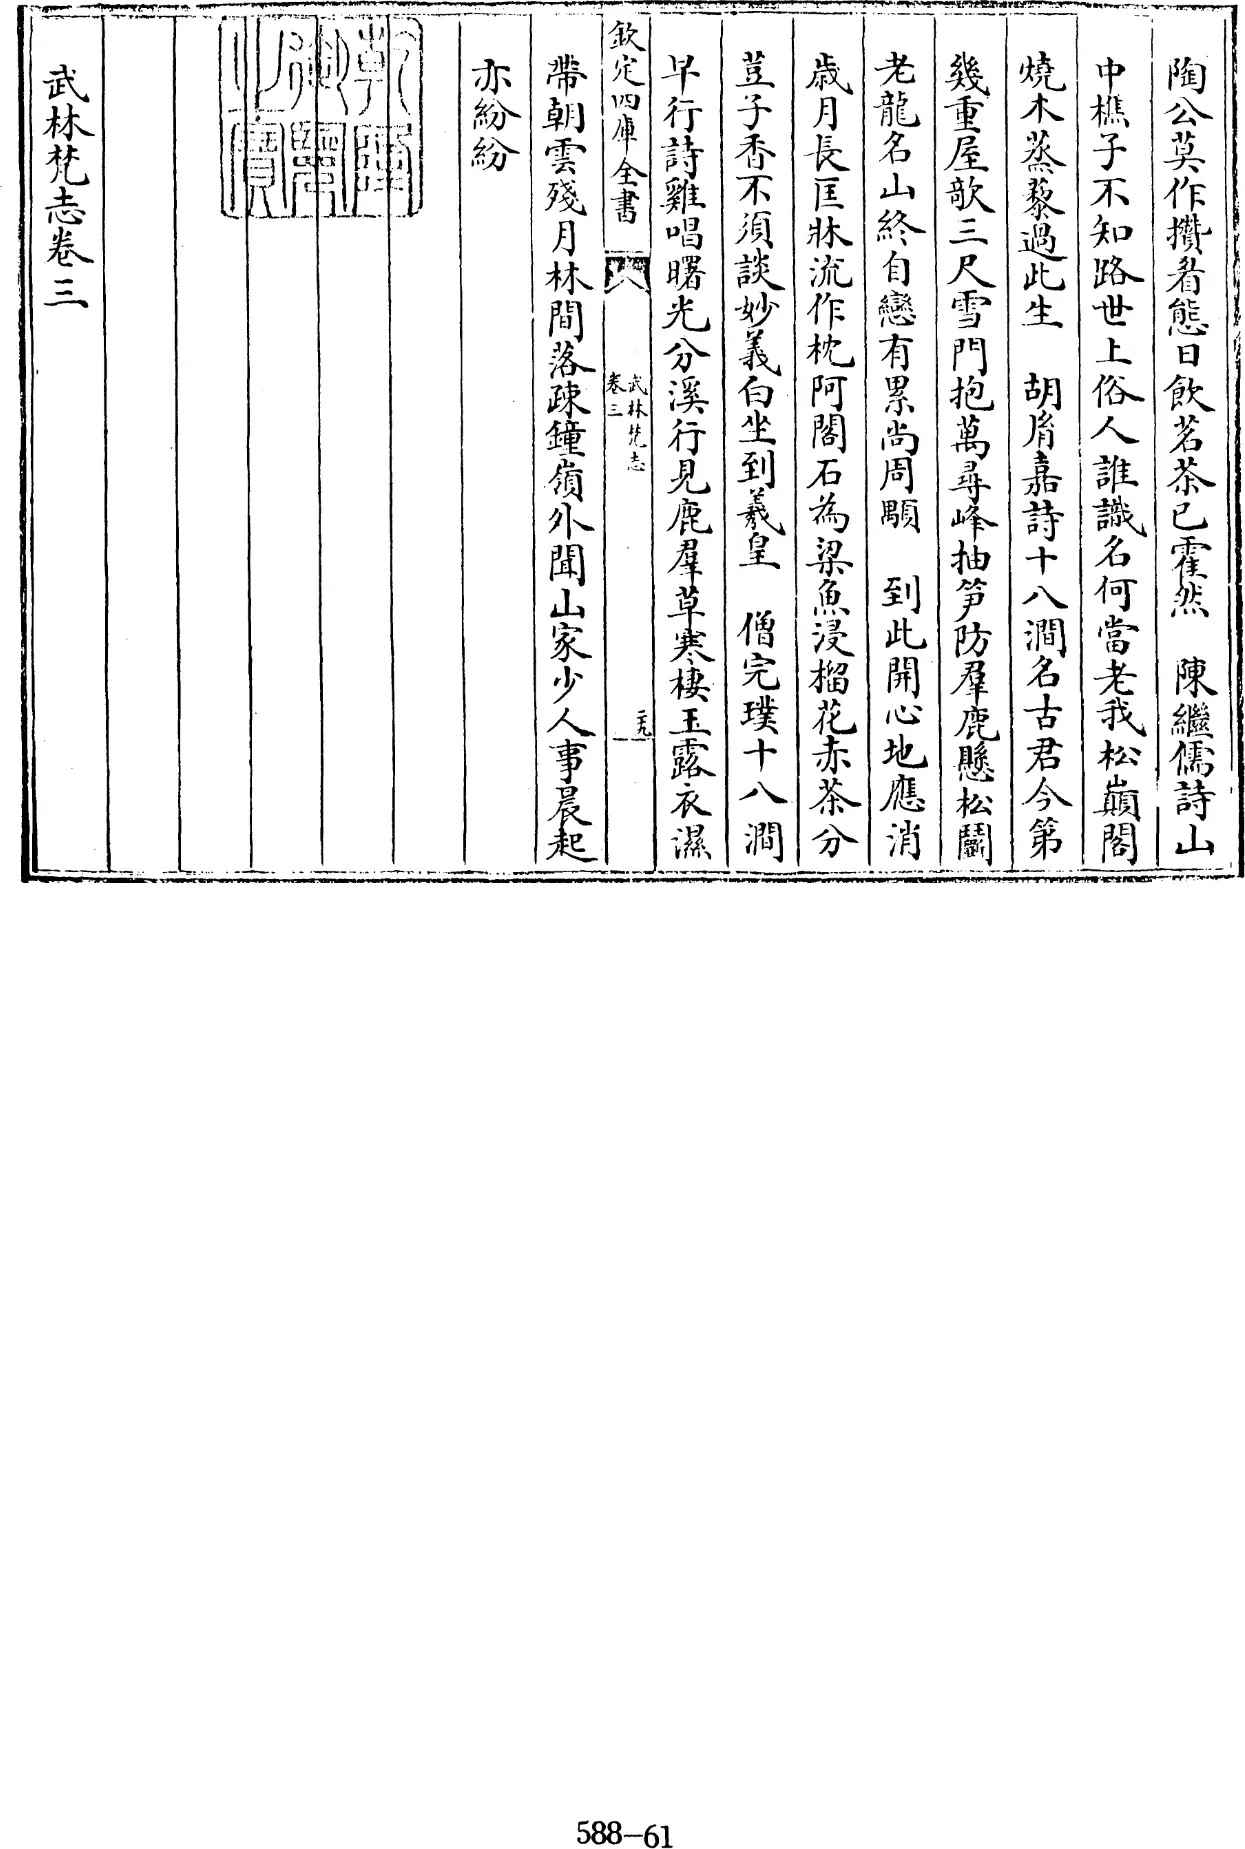 陶公莫作攢眉態日飲茗茶已霍然　陳繼儒詩山
中樵子不知路世上俗人誰識名何當老我松巔閣
燒木蒸藜過此生　胡胤嘉詩十八澗名古君今第
幾重屋歌三尺雪門抱萬尋峰抽笋防羣鹿懸松鬭
老龍名山終自戀有累尚周顒　到此開心地應消
歲月長匡牀流作枕阿閣石為梁魚浸榴花赤茶分
荳子香不須談妙義白坐到羲皇　僧完璞十八澗
早行詩雞唱曙光分溪行見鹿羣草寒棲玉露衣濕
欽定四庫全書
武林梵志
卷三
二十九
帶朝雲殘月林間落疎鐘嶺外聞山家少人事晨起
亦紛紛
乾隆御覽之寶
武林梵志卷三
588-61